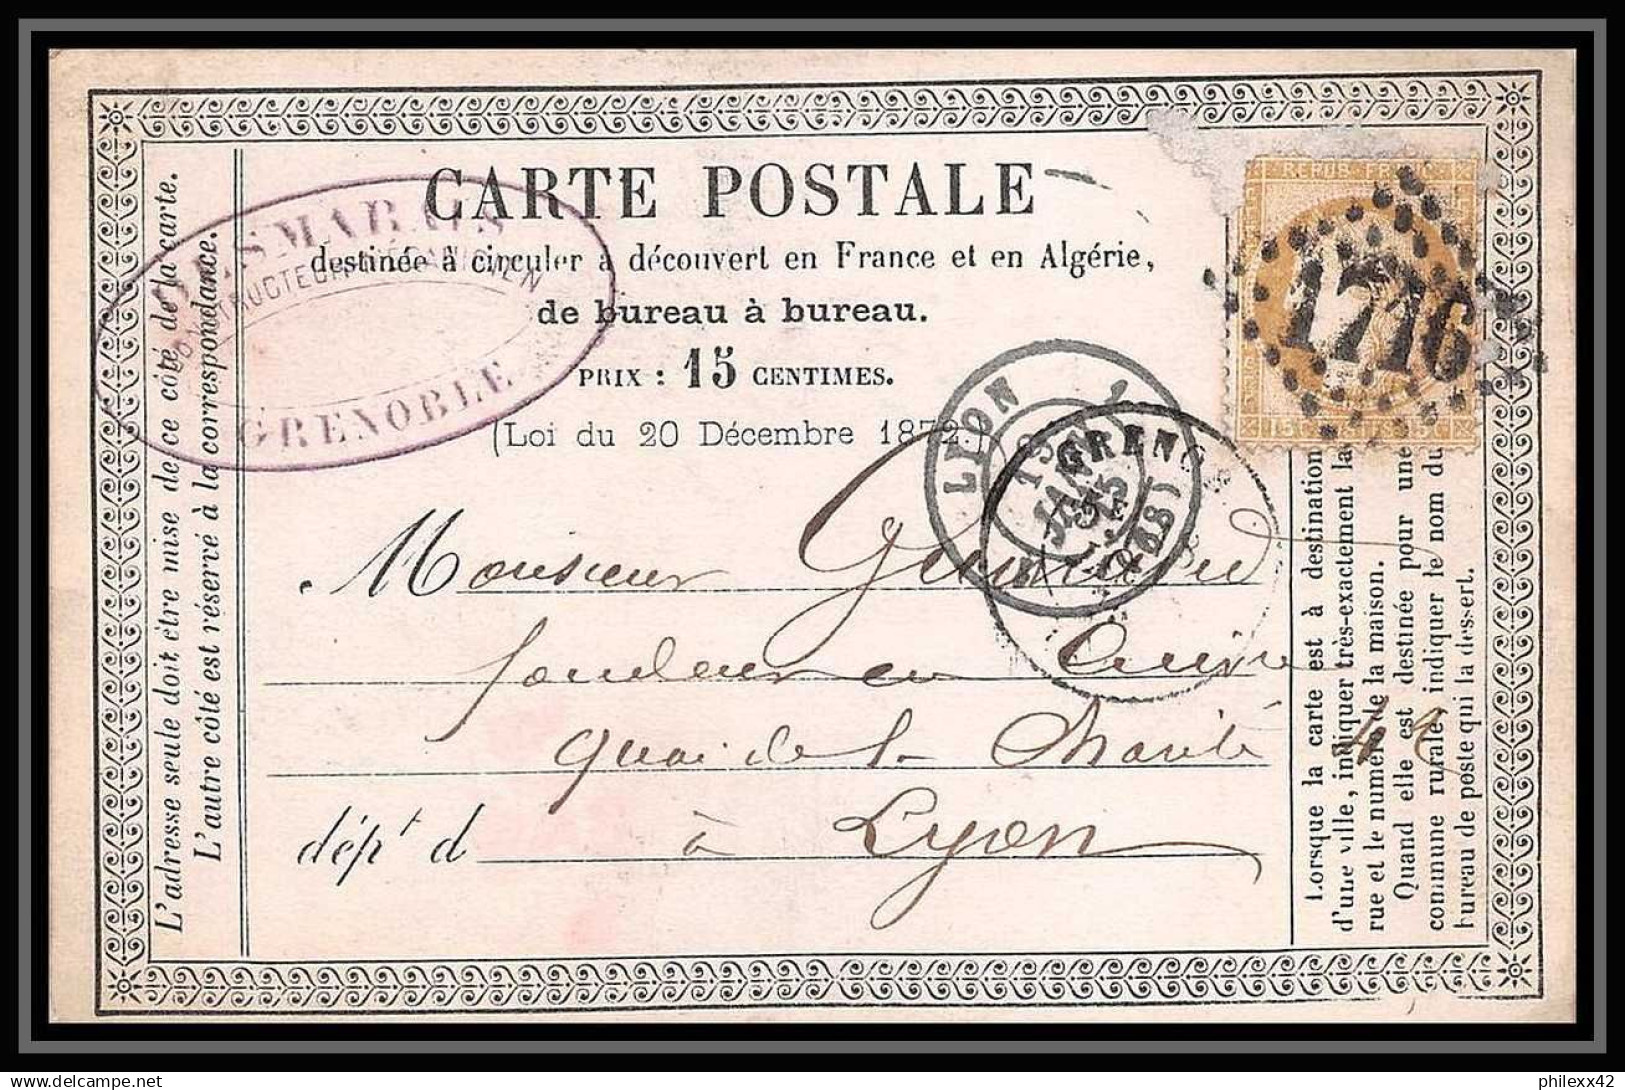 CARTE POSTALE
destinée à circuler à découvert en France et en Algérie,
de bureau à bureau.
PRIX : 15 CENTIMES.
(Loi du 20 Décembre 1872.)
L'adresse seule doit être mise de ce côté de la carte.
L'autre côté est réservé à la correspondance.
GRENOBLE
REPUB. FRANC
1716
LYON
GRENO
(38)
Monsieur
fondeur en Cuivre
Quai de la Charité
dépt d à Lyon
42
Lorsque la carte est à destination
d'une ville, indiquer très-exactement la
rue et le numéro de la maison.
Quand elle est destinée pour une
commune rurale, indiquer le nom du
bureau de poste qui la dessert.
philexx42